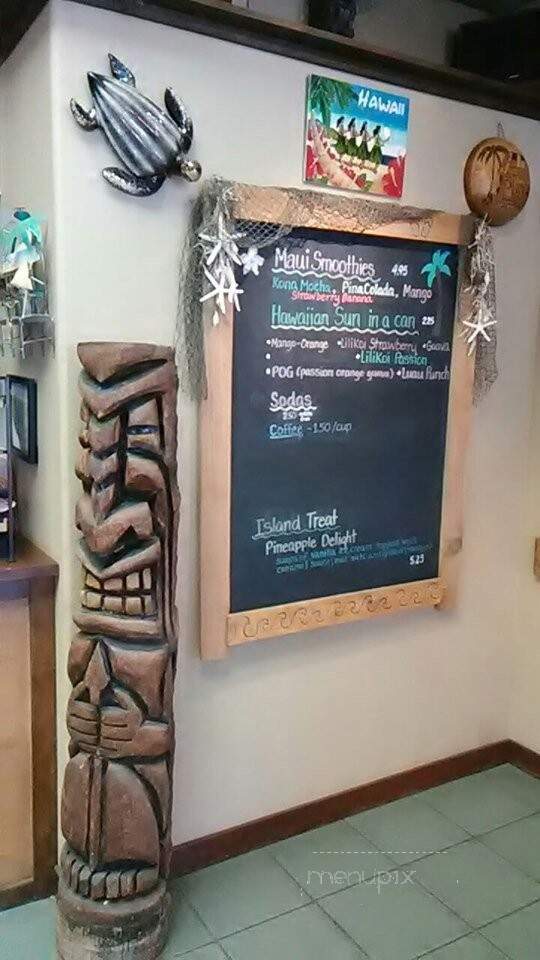 HAWAII
Maui Smoothies 4.95
Kona Mocha, Pina Colada, Mango
Strawberry Banana
Hawaiian Sun in a can 2.25
•Mango-Orange •Lilikoi Strawberry •Guava
• •Lilikoi Passion
•POG (passion orange guava) •Luau Punch
Sodas
2.50
Coffee -1.50/cup
Island Treat
Pineapple Delight
vanilla ice cream topped with
caramel sauce, mac nuts
menupix